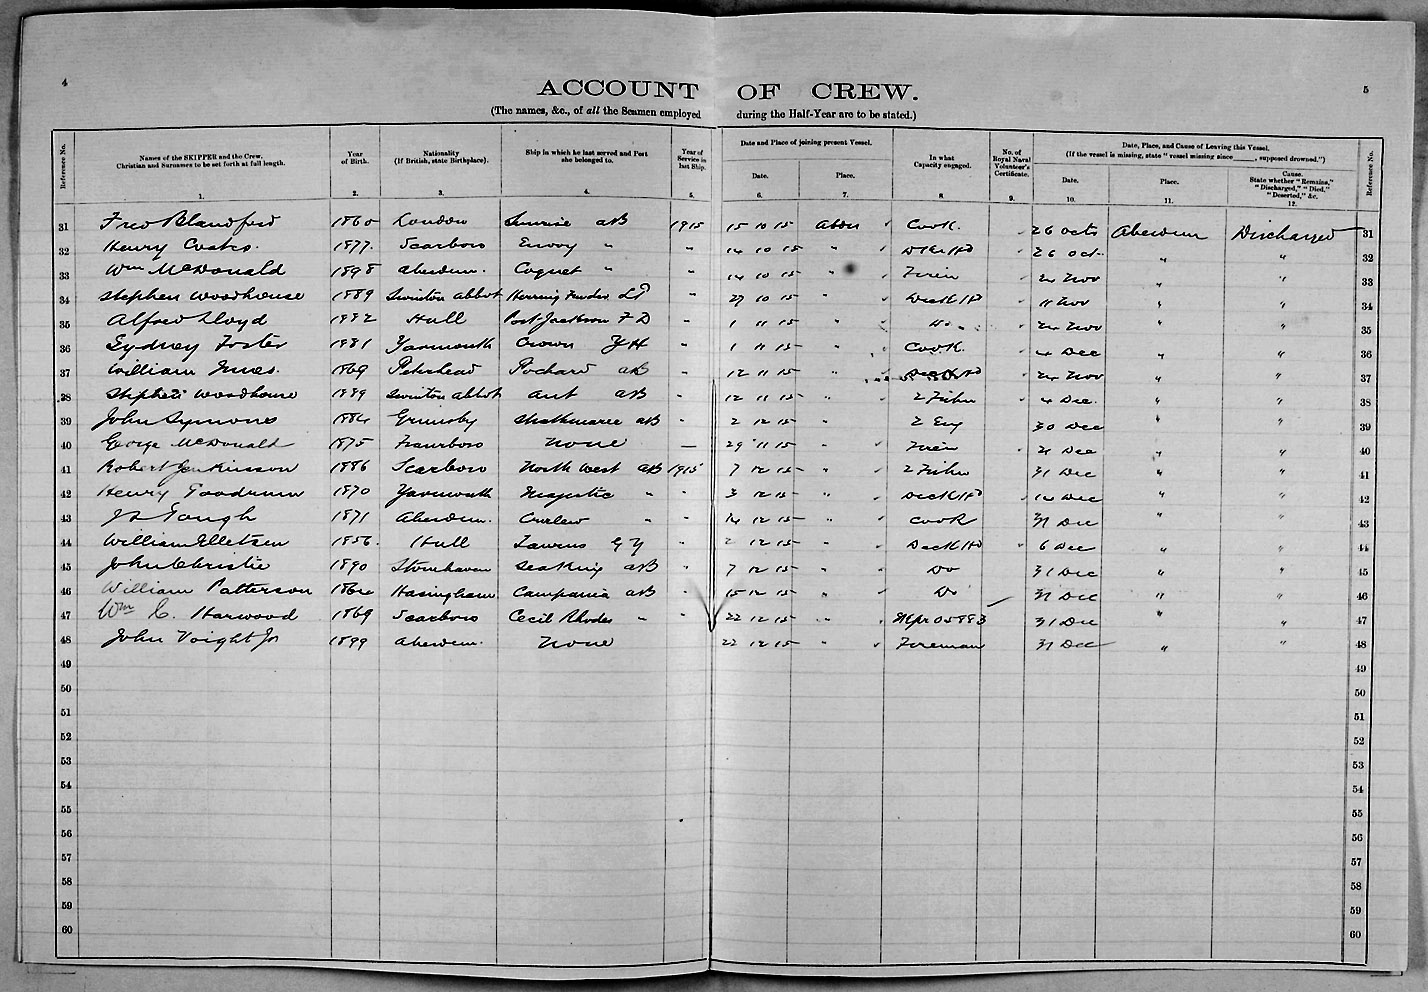 4
5
ACCOUNT OF CREW.
(The names, &c., of all the Seamen employed during the Half-Year are to be stated.)
Reference No.
Names of the SKIPPER and the Crew, Christian and Surnames to be set forth at full length.
Year of Birth.
Nationality (If British, state Birthplace).
Ship in which he last served and Port she belonged to.
Year of Service in last Ship.
Date and Place of joining present Vessel.
Date.
Place.
In what Capacity engaged.
No. of Royal Naval Volunteer's Certificate.
Date, Place, and Cause of Leaving this Vessel.
(If the vessel is missing, state "vessel missing since____, supposed drowned.")
Date.
Place.
Cause. State whether "Remains," "Discharged," "Died," "Deserted," &c.
Reference No.
1. 2. 3. 4. 5. 6. 7. 8. 9. 10. 11. 12.
31 Fred Blandford 1860 London Sunrise aB 1915 15 10 15 Abdn Cook 26 Octs Aberdeen Discharged 31
32 Henry Coates. 1877. Scarboro Envoy " " 14 10 15 " Deck Hd 26 Oct. " " 32
33 Wm McDonald 1898 Aberdeen. Coquet " " 14 10 15 " Firem 24 Nov " " 33
34 Stephen Woodhouse 1889 Swinton Abbot Herring LT " 27 10 15 " Deck Hd 11 Nov " " 34
35 Alfred Lloyd 1892 Hull Port Jackson F D " 1 11 15 " Do 24 Nov " " 35
36 Sydney Foster 1881 Yarmouth Crown YH " 1 11 15 " Cook. 4 Dec " " 36
37 William Innes. 1869 Peterhead Pochard aB " 12 11 15 " Deck Hd 24 Nov " " 37
38 Stephen Woodhouse 1889 Swinton Abbot Ant aB " 12 11 15 " 2 Fishn 4 Dec. " " 38
39 John Symons 1884 Grimsby Strathmaree aB " 2 12 15 " 2 Eng 30 Dec " " 39
40 George McDonald 1875 None — 29 11 15 " Firem Dec " " 40
41 Robert Jenkinson 1886 Scarboro North West aB 1915 7 12 15 " 2 Fishn 31 Dec " " 41
42 Henry Goodrum 1870 Yarmouth Majestic " " 3 12 15 " Deck Hd 14 Dec " " 42
43 Js Gough 1871 Aberdeen. Curlew " " 14 12 15 " Cook 31 Dec " " 43
44 William Elletsen 1856. Hull Taurus G Y " 2 12 15 " Deck Hd 6 Dec " " 44
45 John Christie 1890 Stonehaven Sea King aB " 7 12 15 " Do 31 Dec " " 45
46 William Patterson Campania aB 15 12 15 " Do 31 Dec " " 46
47 Wm C. Harwood 1869 Scarboro Cecil Rhodes " " 22 12 15 " 31 Dec " " 47
48 John Voight Jr 1899 Aberdeen. None 22 12 15 " Fireman 31 Dec " " 48
49 49
50 50
51 51
52 52
53 53
54 54
55 55
56 56
57 57
58 58
59 59
60 60